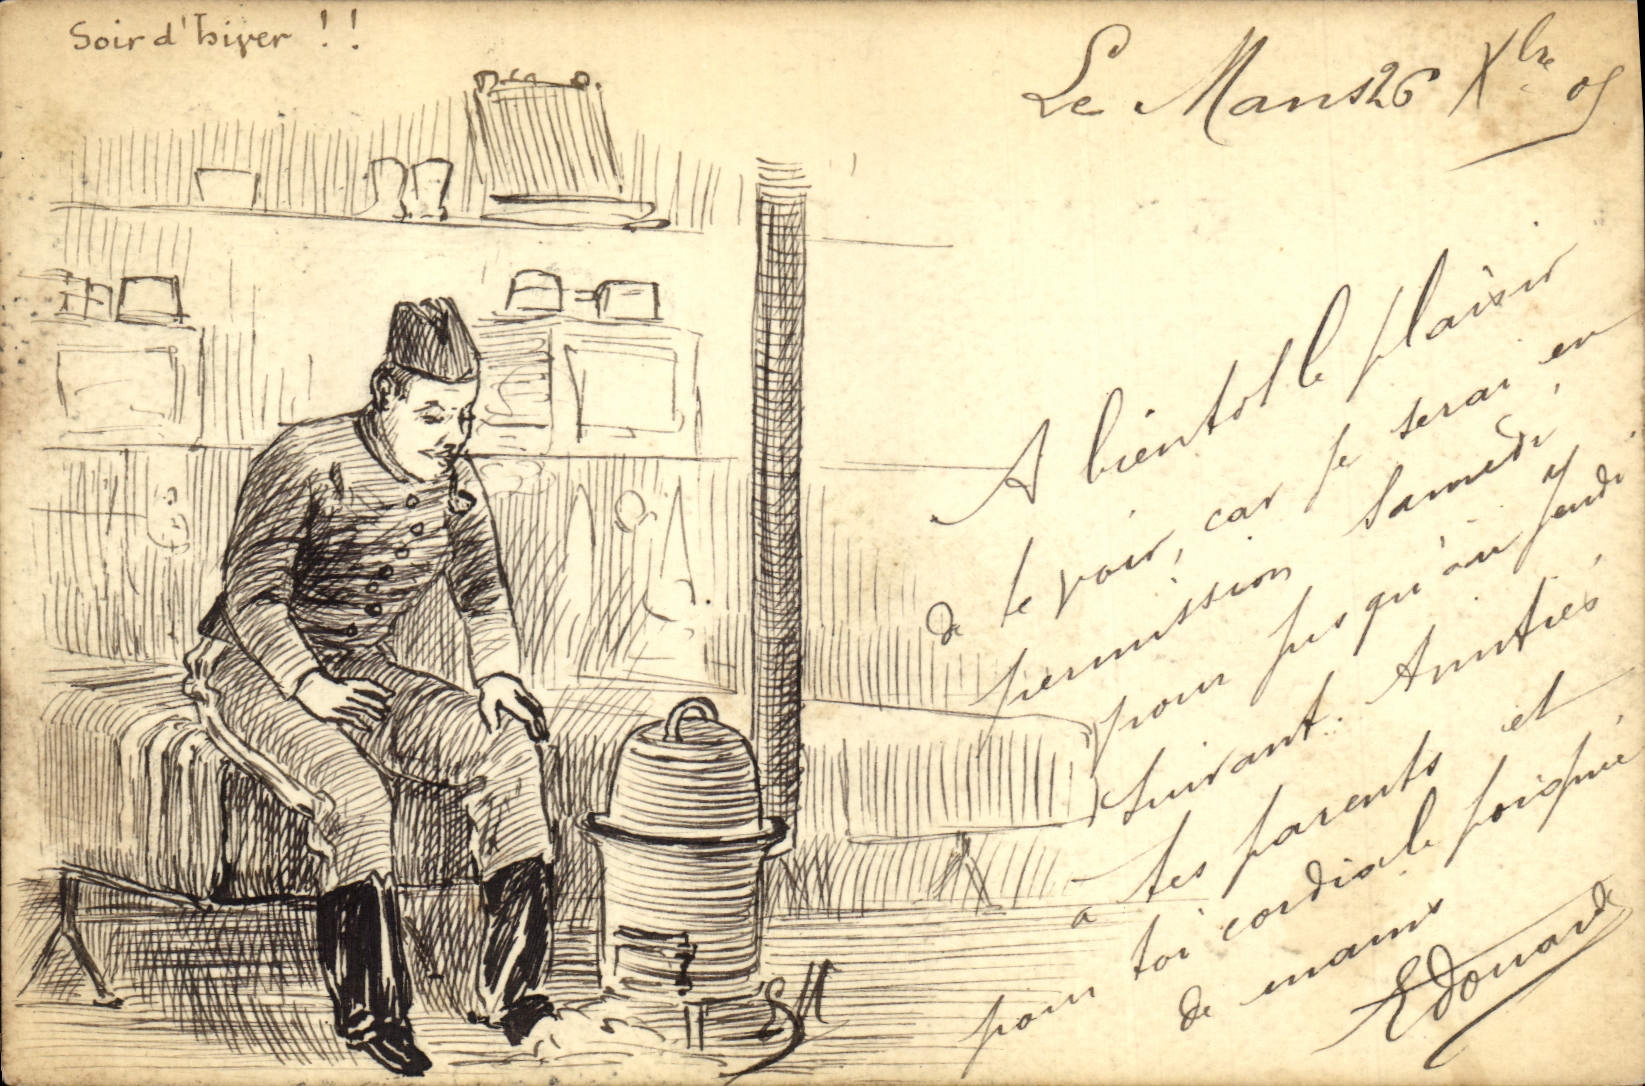 Soir d'hiver !!
Le Mans 26 Xbre 05
A bientot le plaisir
de te voir, car je serai en
permission samedi,
pour jusqu'au jeudi
suivant. Amitiés
a tes parents et
pour toi cordiale poignée
de mains
Edouard
EM